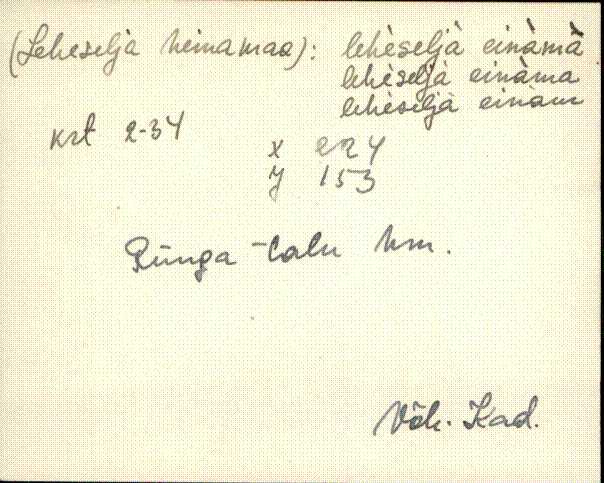 (Leheselja heinamaa): lehèseljà einàmà
lehèseljà einàma
lehèseljà einàm
krt 2-34
x 224
y 153
Rünga-talu hm.
Võh. Kad.